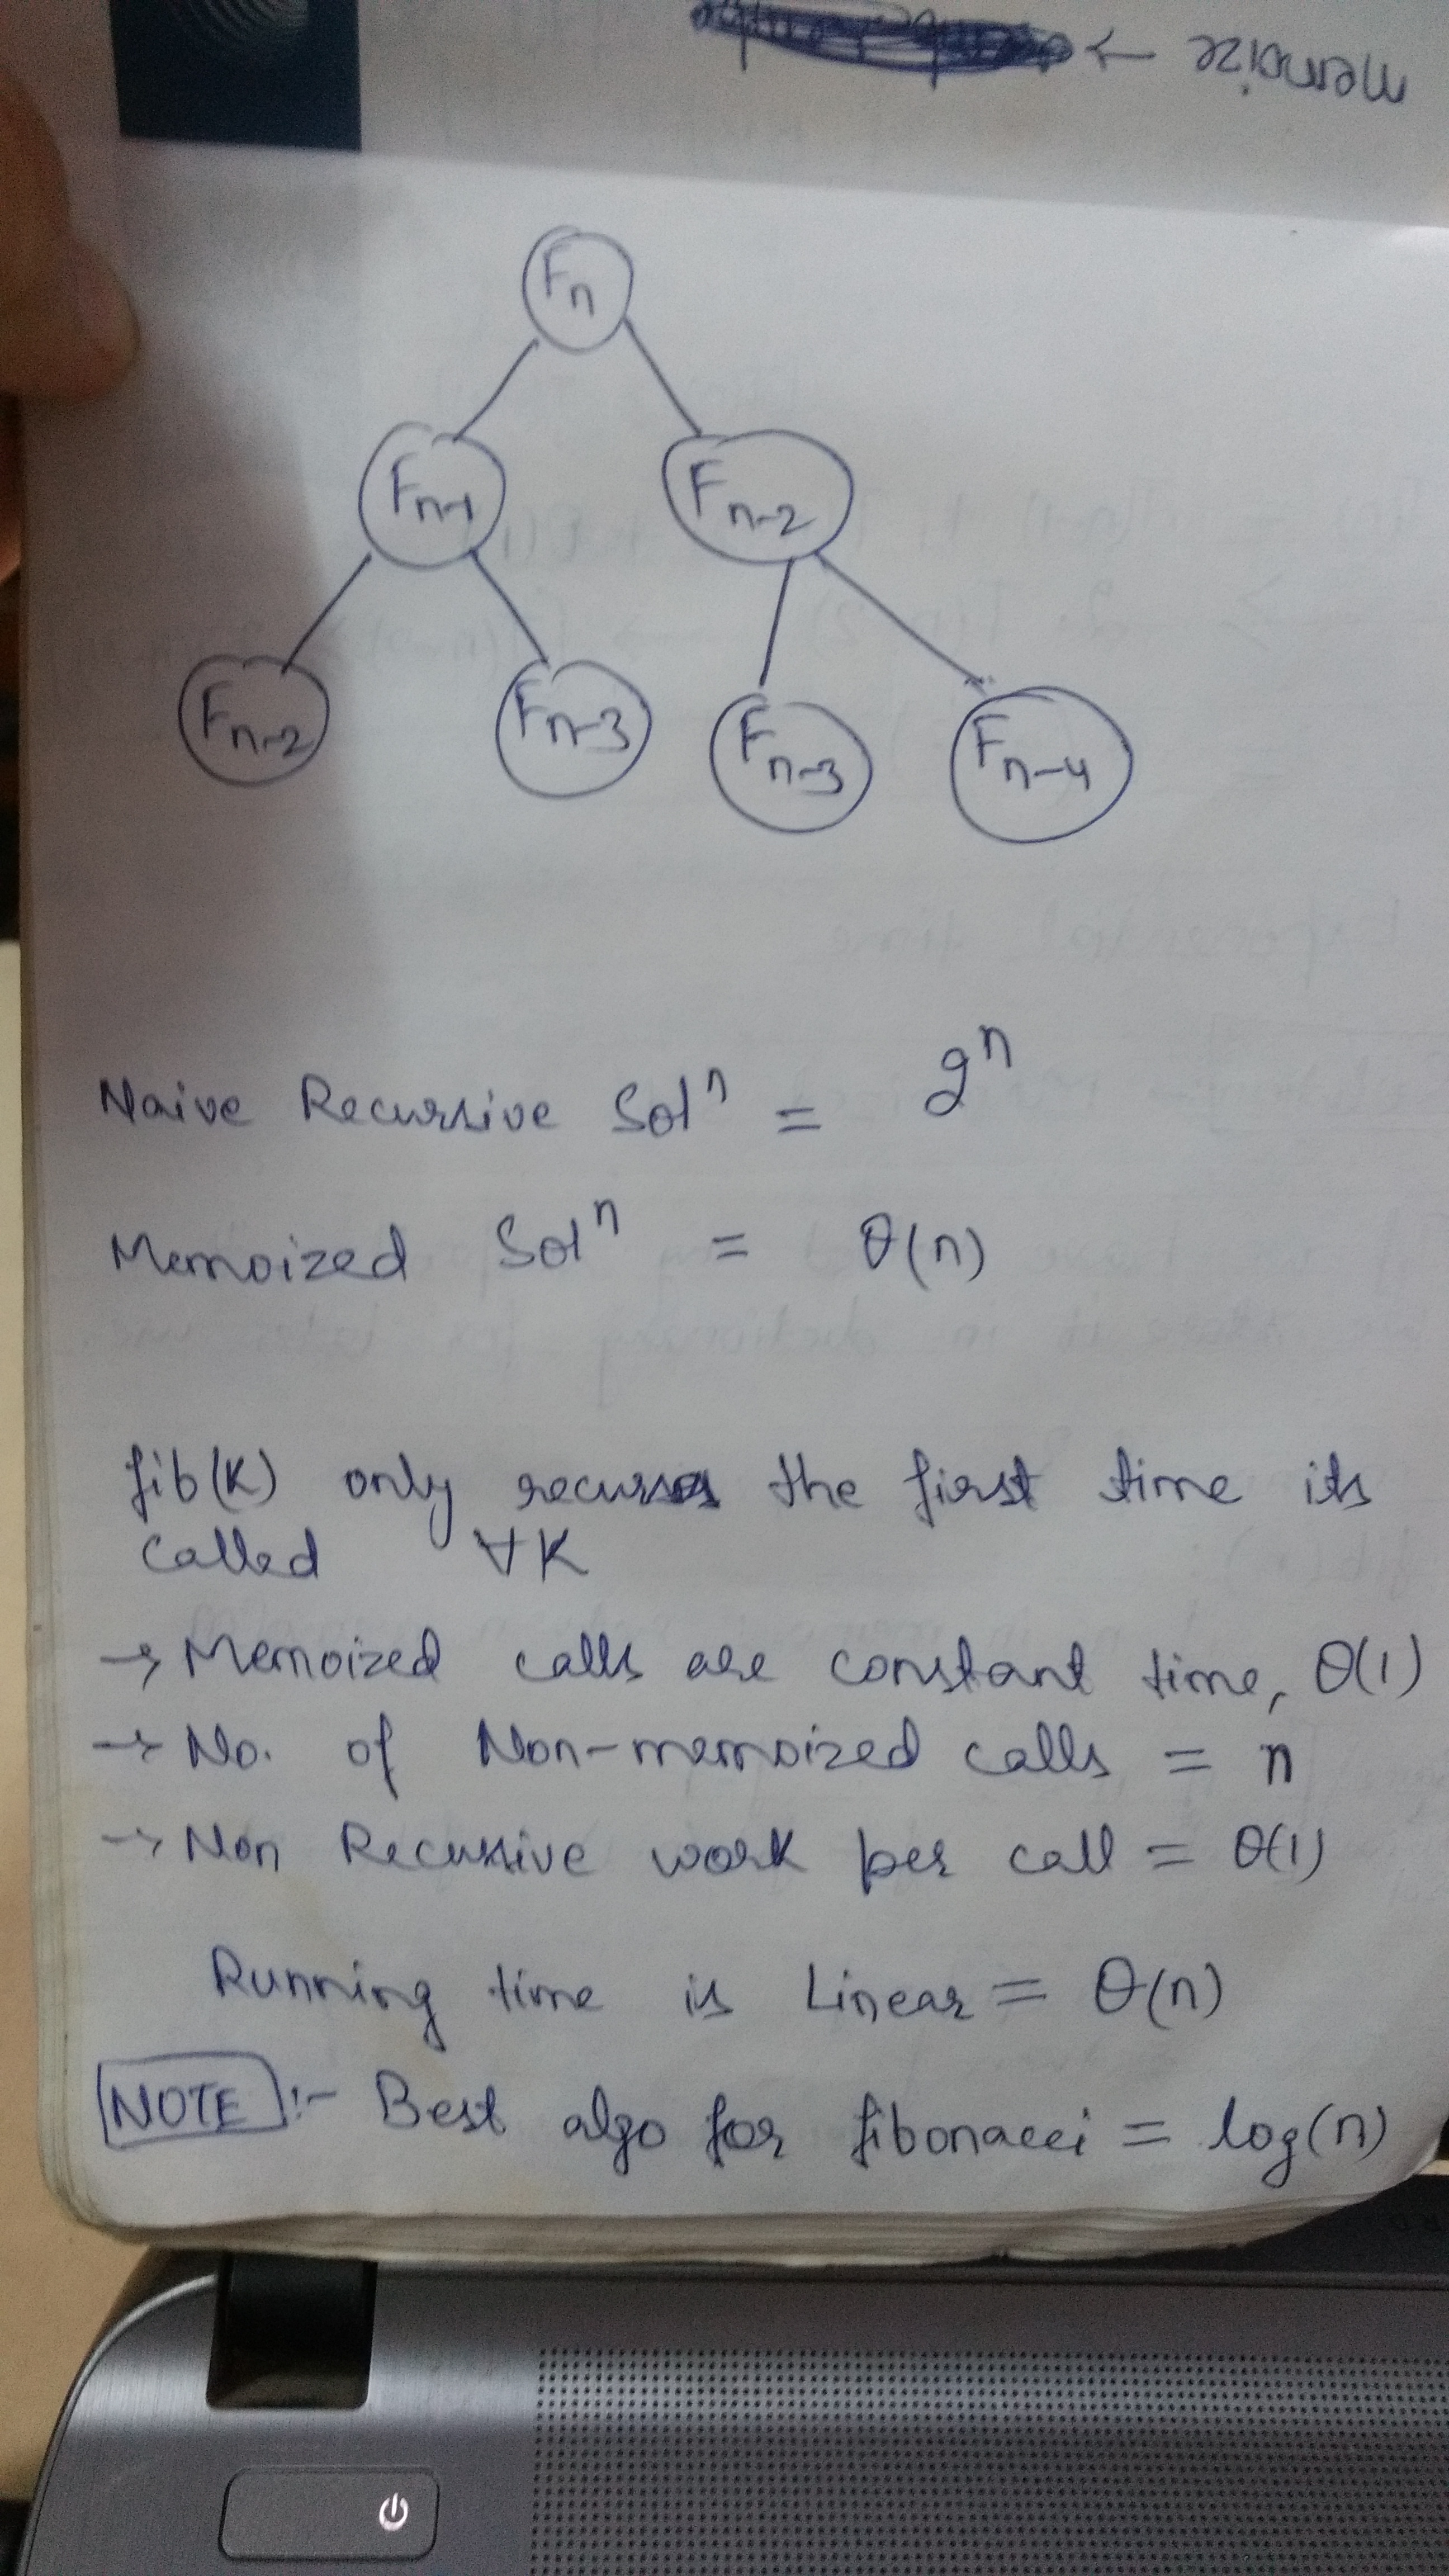 Memoize →
Fn
Fn-1 Fn-2
Fn-2 Fn-3 Fn-3 Fn-4
Naive Recursive Solⁿ = 2ⁿ
Memoized Solⁿ = θ(n)
fib(K) only recurses the first time its
called ∀K
→ Memoized calls are constant time, θ(1)
→ No. of Non-memoized calls = n
→ Non Recursive work per call = θ(1)
Running time is Linear = θ(n)
NOTE :- Best algo for fibonacci = log(n)